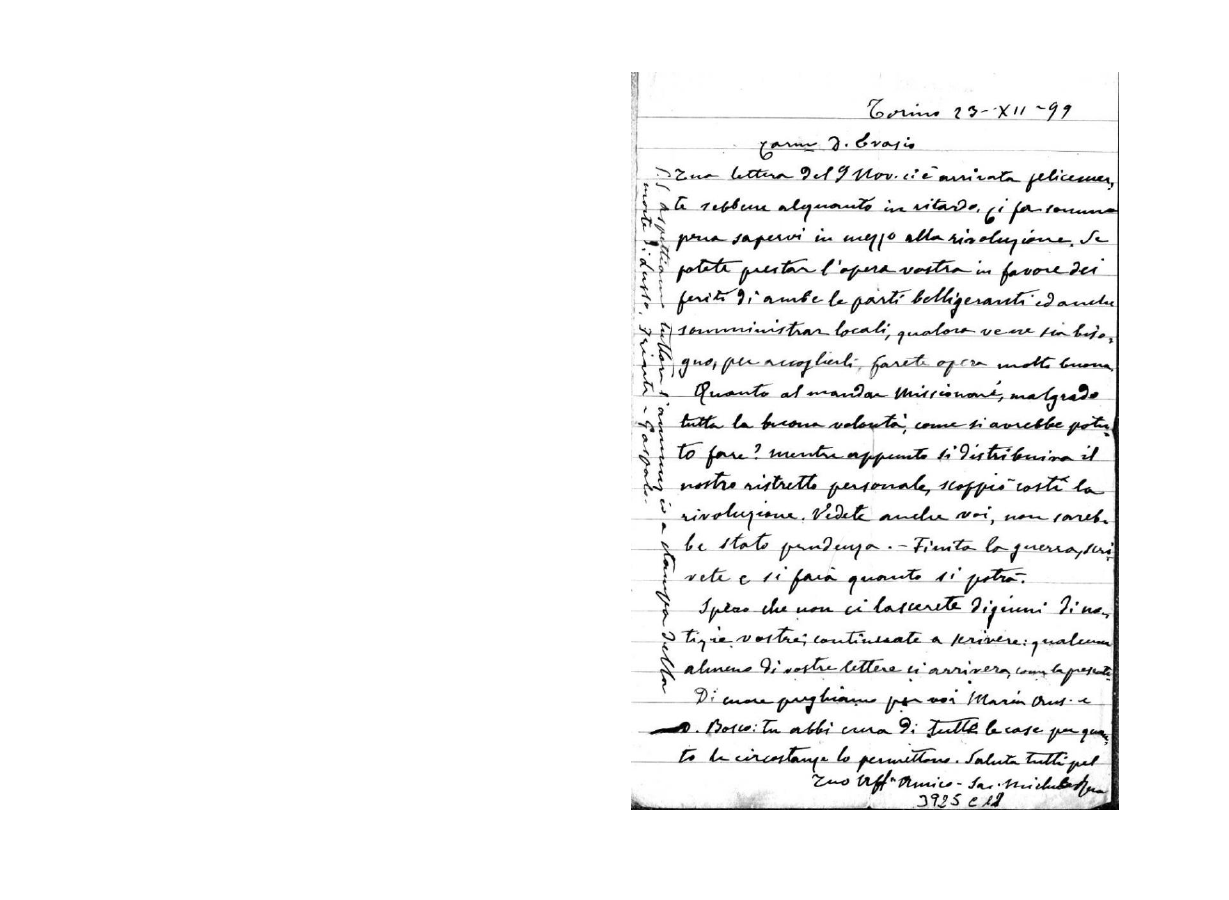 Torino 23-XII-99
Carmo D. Evasio
Tua lettera del 9 Nov. ci è arrivata felicemen,
te sebbene alquanto in ritardo. Ci fa somma
pena sapervi in mezzo alla rivoluzione. Se
potete prestar l'opera vostra in favore dei
feriti di ambe le parti belligeranti ed anche
somministrar locali, qualora ve ne sia biso,
gno, per accoglierli, farete opera molto buona.
Quanto al mandar Missionari, malgrado
tutta la buona volontà, come si avrebbe potu,
to fare? mentre appunto si distribuiva il
nostro ristretto personale, scoppiò costì la
rivoluzione. Vedete anche voi, non sareb-
be stato prudenza. - Finita la guerra, scri,
vete e si farà quanto si potrà.
Spero che non ci lascerete digiuni di no,
tizie vostre; continuate a scrivere: qualcuna
almeno di vostre lettere ci arriverà, come la presente.
Di cuore preghiamo per voi Maria Aus. e
D. Bosco: tu abbi cura di tutte le case per quan,
to le circostanze lo permettono. Saluta tutti pel
Tuo Aff.º Amico - Sac. Michele Rua
3925 C 12
P.S Aspettiam tuttora l'annunzio a stampa della
morte di Dusso, Trinite - Gaspole